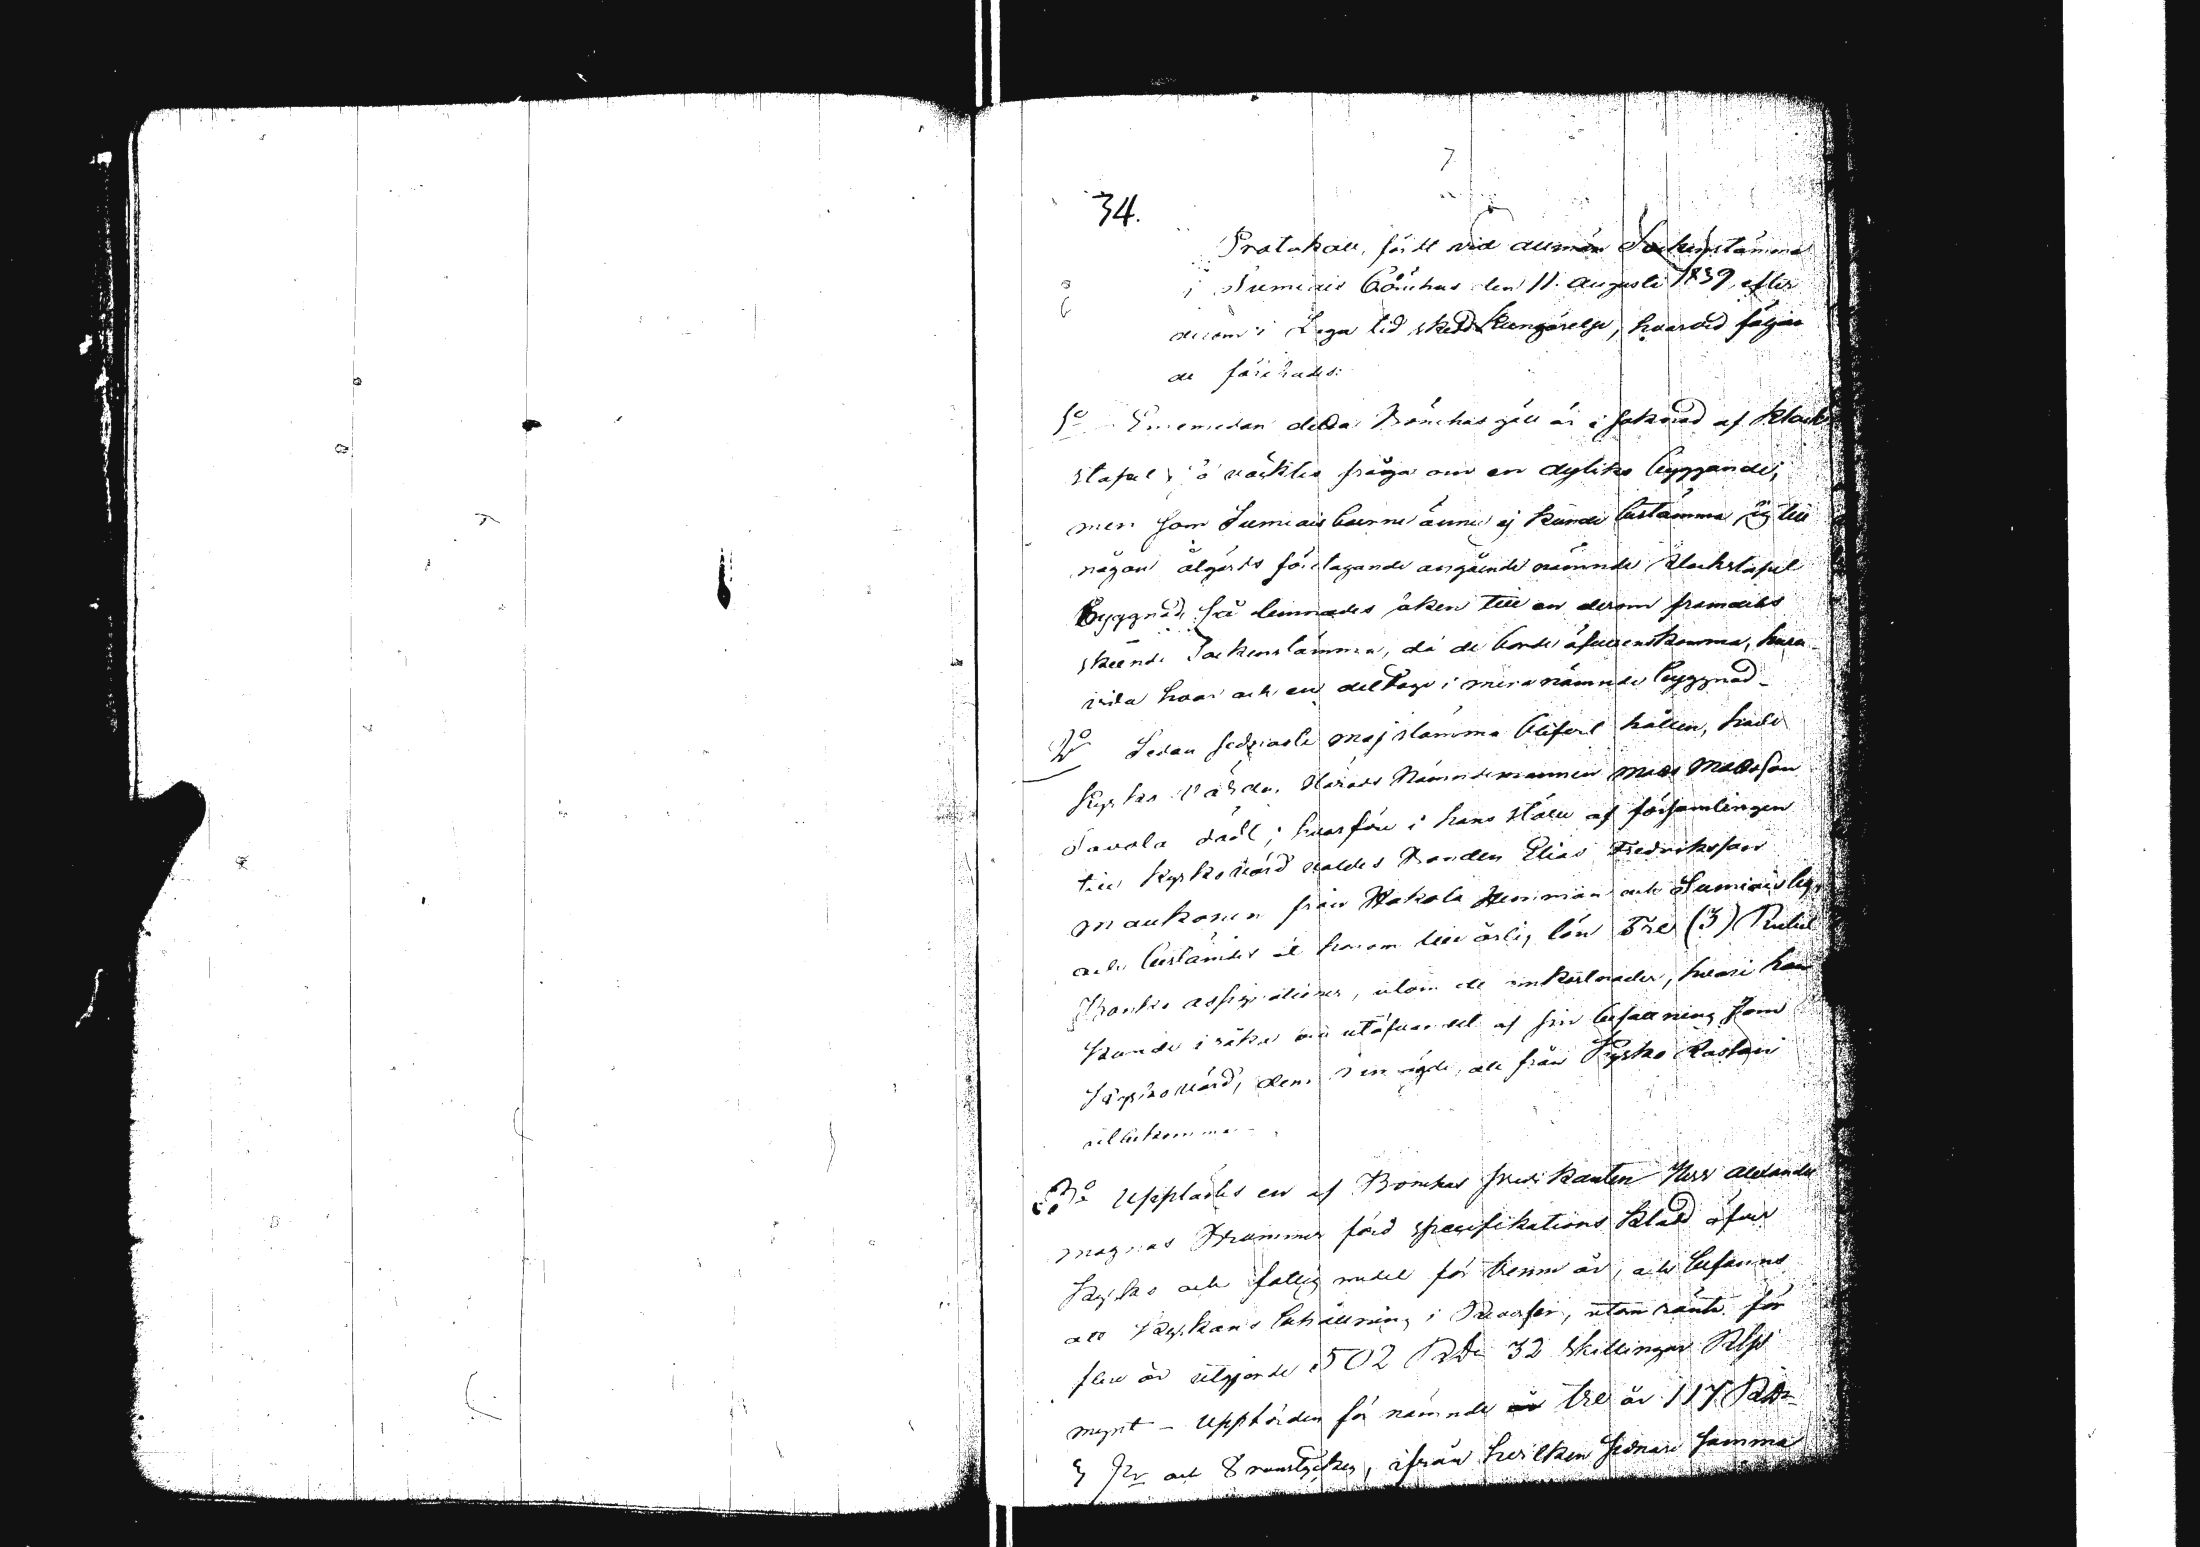 7
34.
Protokoll, fördt vid allmän Sockenstämma
i Sumiais Bönehus den 11. Augusti 1839, efter
derom i Laga tid skedd Kungörelse, hvarvid följan
de förehades:
1o Emedan detta Bönehusgäll är i saknad af Klock
stapel, så väcktes fråga om en dyliks byggande;
men som Sumiais boerne ännu ej kunde bestämma sig till
någon åtgärds företagande angående nämnde Klockstapel
Byggnad, så lemnades saken till en derom framdeles
skeende Sockenstämma, då de borde öfverenskomma, huru
vida hvar och en deltage i mera nämnde byggnad_
2o Sedan sednaste Maj stämma blifvit hållen, hade
Kyrko Värden Härads Nämndemannen Mats Matsson
Savola dödt; hvarföre i hans ställe af församlingen
till Kyrkovärd valdes Bonden Elias Fredriksson
Maukonen från Hakola Hemman och Sumiais by,
och bestämdes åt honom till årlig lön Tre (3) Rubel
Banko Assignationer, utom de omkostnader, hvari han
kunde iråka vid utöfvandet af sin befattning som
Kyrkovärd, dem han ägde, att från Kyrko Kassan
utbekomma_
3o Upplästes en af Bönehus predikanten Herr Alexander
Magnus Krammer förd specifikations Klad öfver
Kyrko och fattig medel för trenne år, och befanns
att Kyrkans behållning i Reverser, utom ränta för
flere år utgjorde 502 RDr 32 skillingar Rgs
mynt – Uppbörden för nämnde tre år 117 RDr
3 sk och 8 runstycken, ifrån hvilken sednare summa